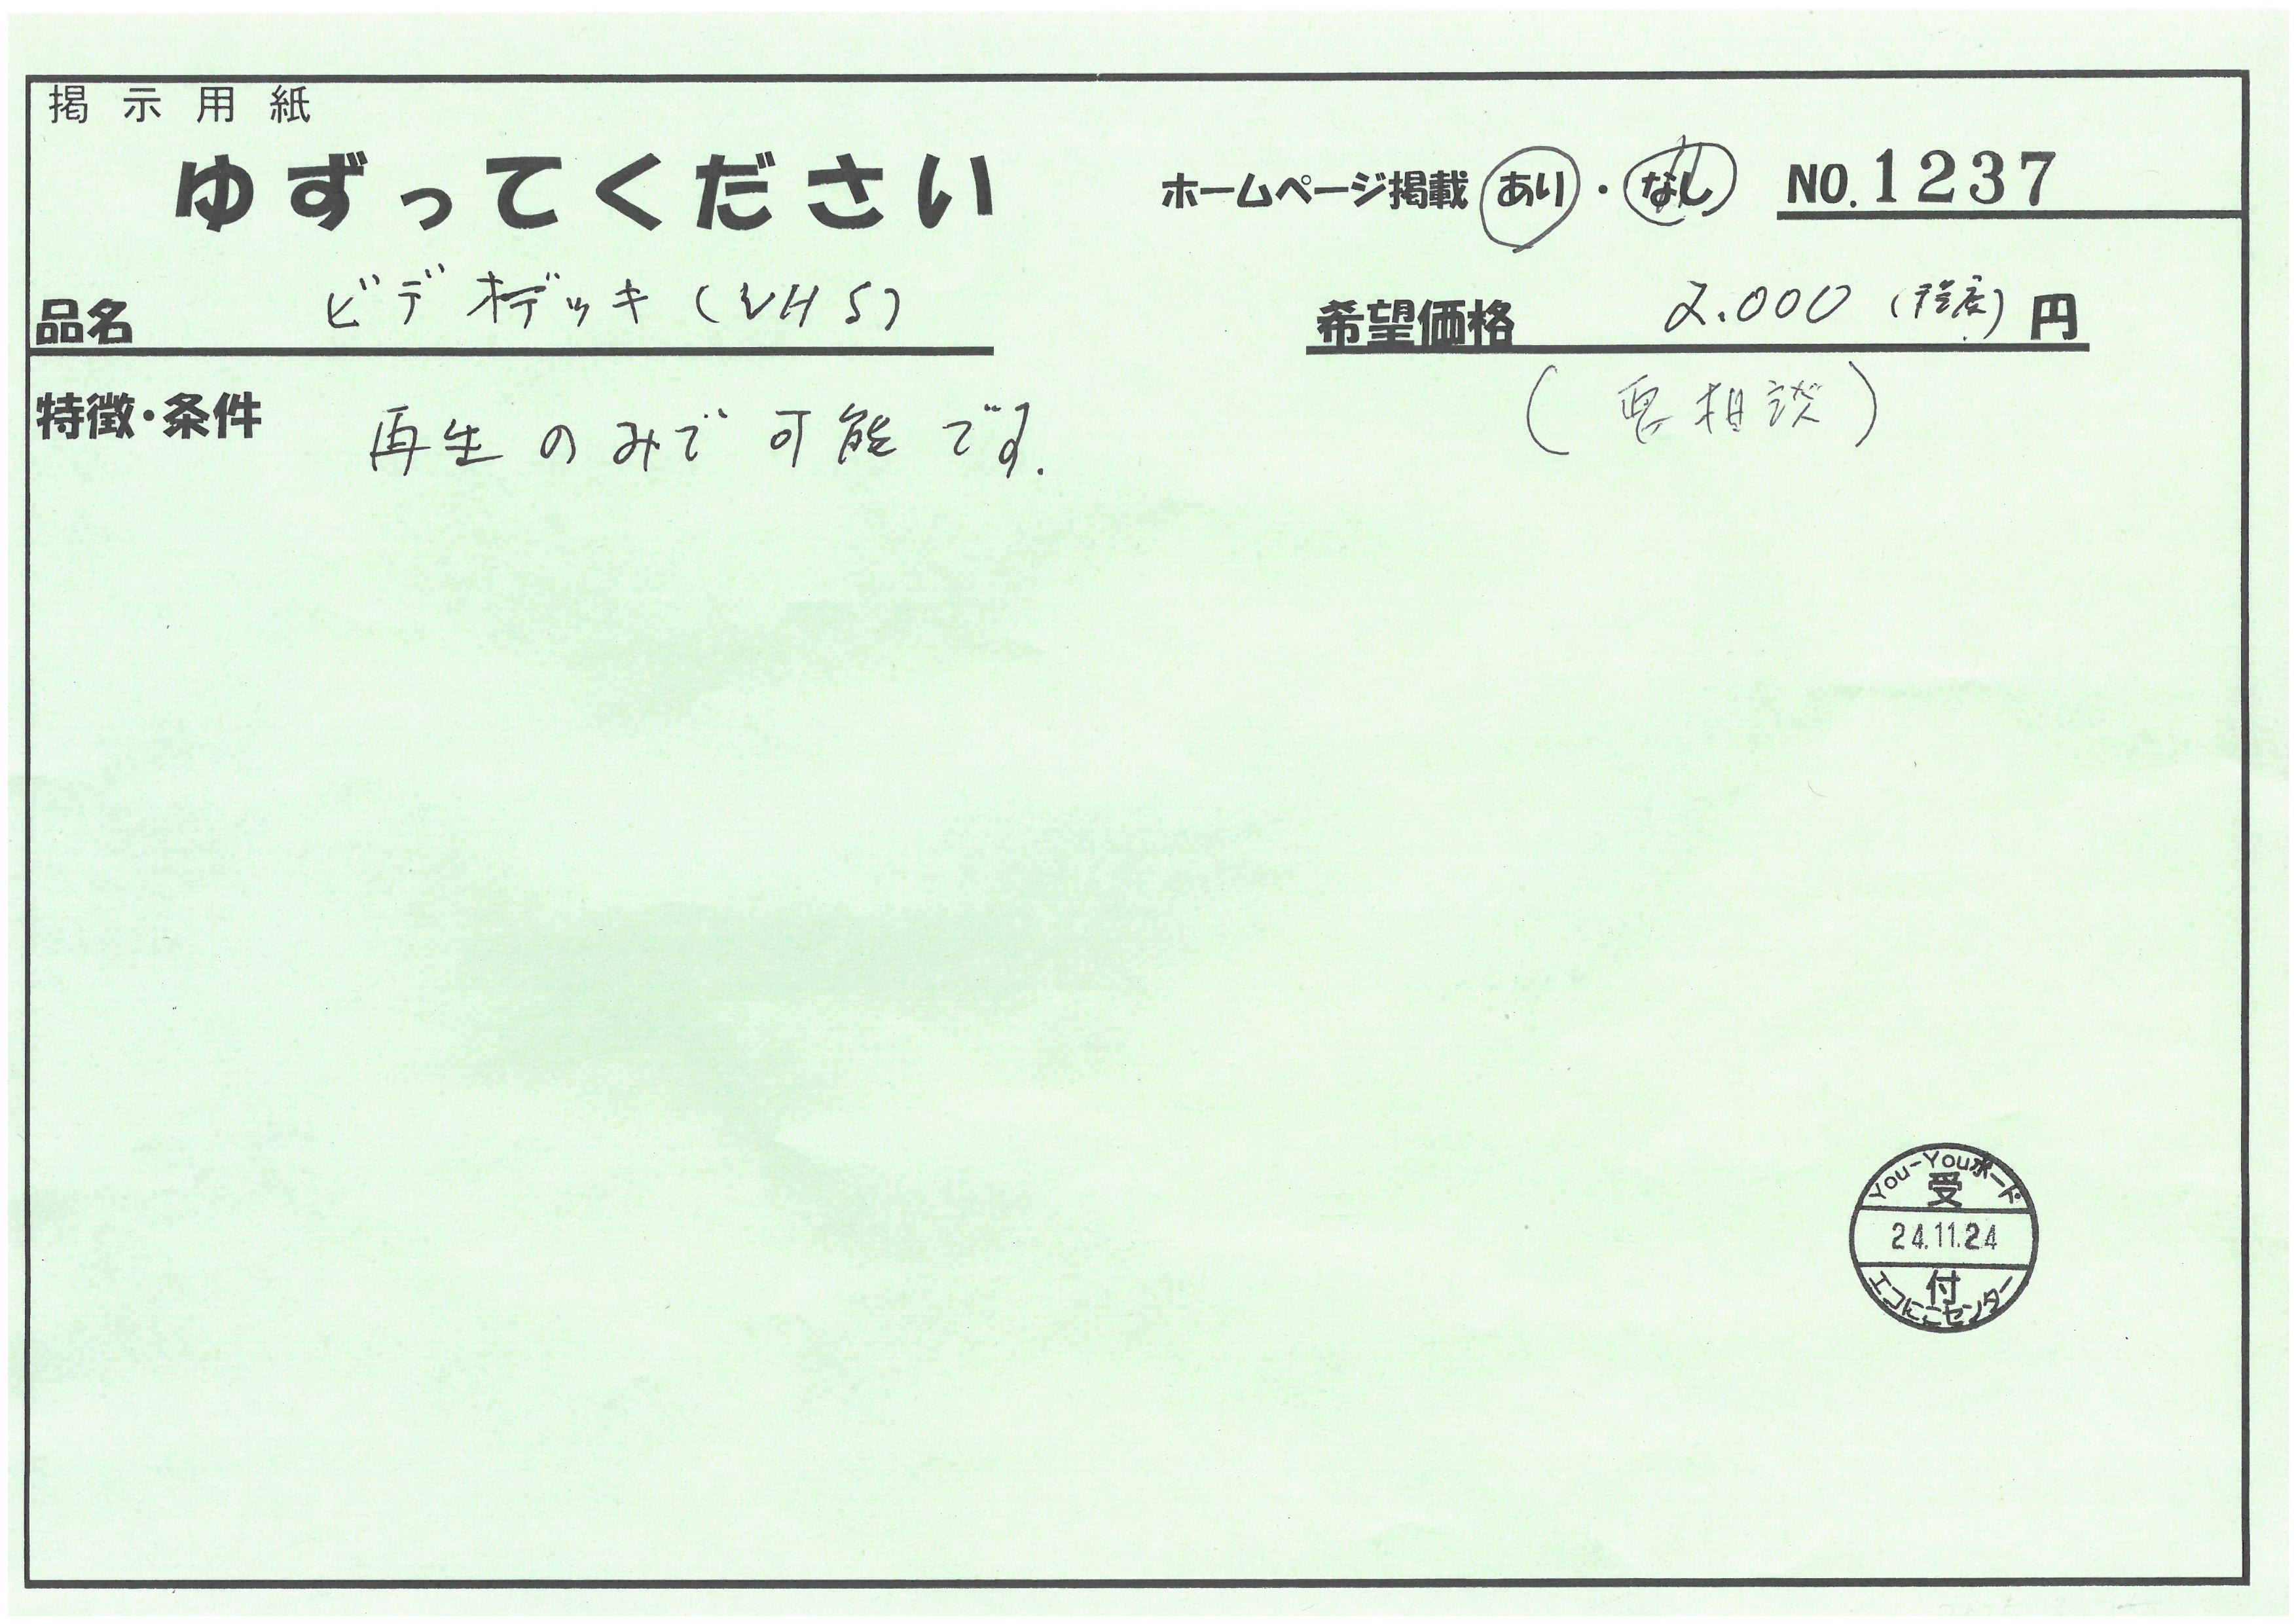 掲示用紙
ゆずってください
ホームページ掲載 あり・なし NO.1237
品名 ビデオデッキ(VHS)
希望価格 2.000(程度)円
(要相談)
特徴・条件 再生のみで可能です.
You-Youボード
受
24.11.24
付
エコにこセンター